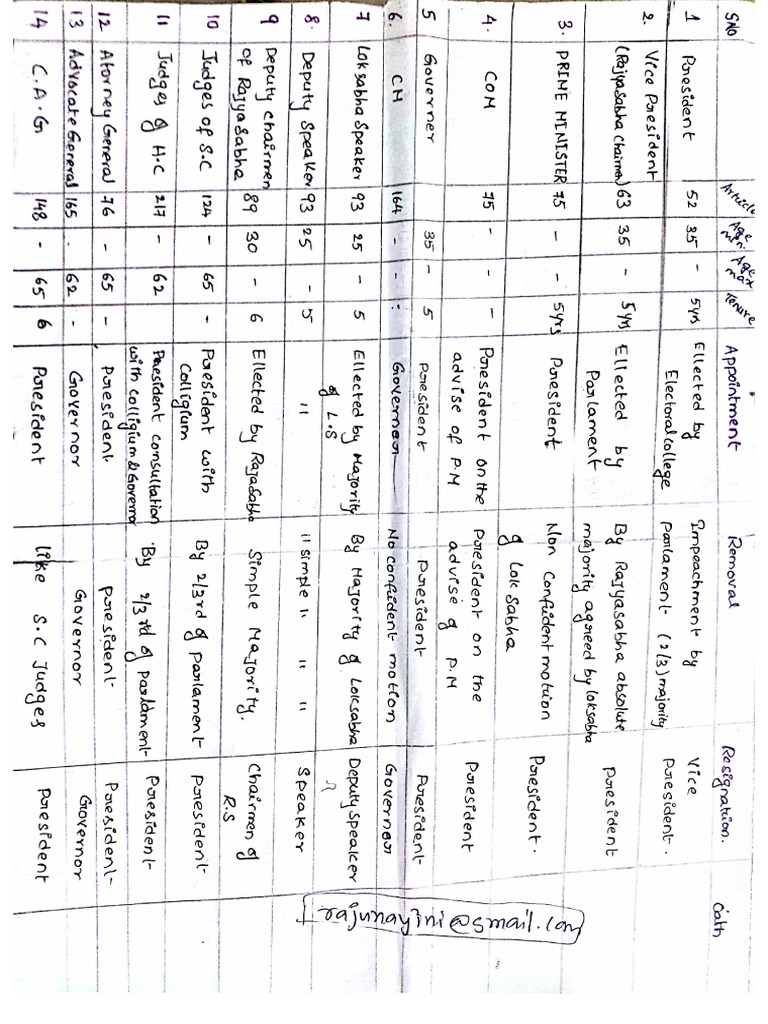 SNO Article Age min Age max Tenure Appointment Removal Resignation. Oath
1 President 52 35 - 5yrs Ellected by Electoral college Impeachment by Parlament (2/3) majority Vice President.
2. Vice President (Rajyasabha Chairmen) 63 35 - 5yrs Ellected by Parlament By Rajyasabha absolute majority agreed by loksabha President
3. PRIME MINISTER 75 - - 5yrs President Non Confident motion of Lok Sabha President.
4. COM 75 - - - President on the advise of P.M President on the advise of P.M President
5 Governer 35 - 5 President President President
6. CM 164 - - : Governor No confident motion Governor
7 Loksabha Speaker 93 25 - 5 Ellected by Majority of L.S By Majority of Loksabha Deputy Speaker
8. Deputy Speaker 93 25 - 5 " " simple " " " Speaker
9 Deputy Chairmen of Rajyasabha 89 30 - 6 Ellected by Rajasabha Simple Majority. Chairmen of R.S
10 Judges of S.C 124 - 65 - President with Colligium By 2/3rd of Parlament President
11 Judges of H.C 217 - 62 President consultation with colligium & Governor By 2/3rd of Parldment President
12 Atorney General 76 - 65 - President President President
13 Advocate General 165 . 62 - Governor Governor Governor
14 C.A.G 148 - 65 6 President like S.C Judges President
rajunayini@gmail.com